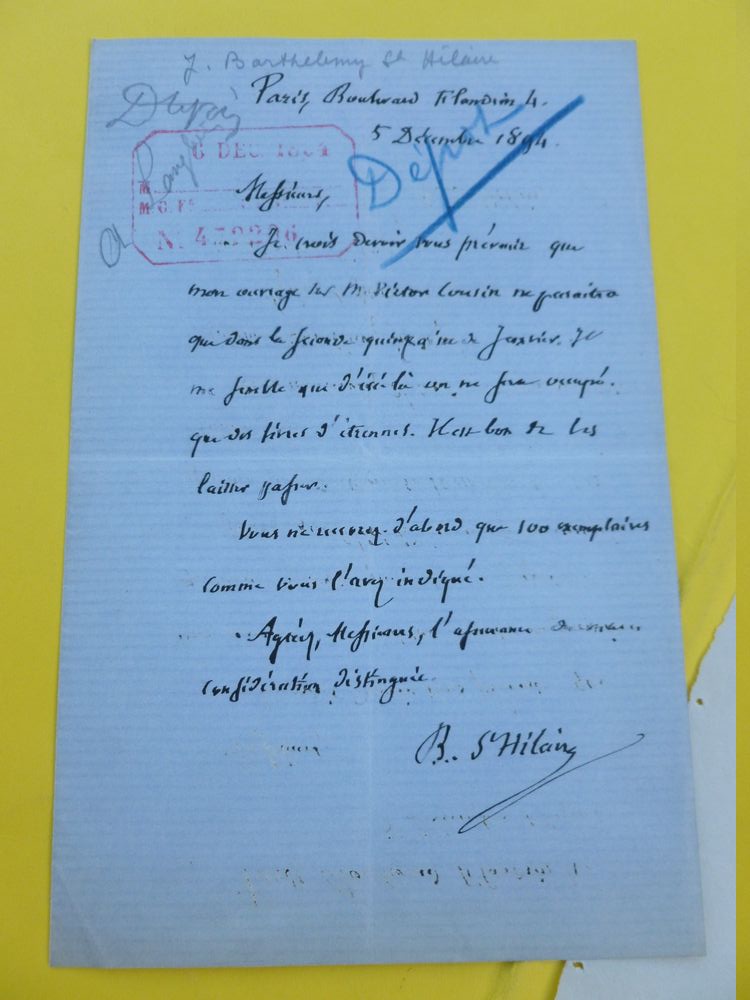 J. Barthelemy St Hilaire
Paris, Boulevard Flandrin 4.
5 Décembre 1894.
Dépôt
Dépôt
6 DEC 1894
M
M.G. Fs
N.
Messieurs,
Je crois devoir vous prévenir que
mon ouvrage sur M. Victor Cousin ne paraîtra
que dans la seconde quinzaine de Janvier. Je
me semble que d'ici là on ne sera occupé
que des livres d'étrennes. Il est bon de les
laisser passer.
Vous ne recevrez d'abord que 100 exemplaires
comme vous l'avez indiqué.
Agréez, Messieurs, l'assurance de ma
considération distinguée.
B. St Hilaire